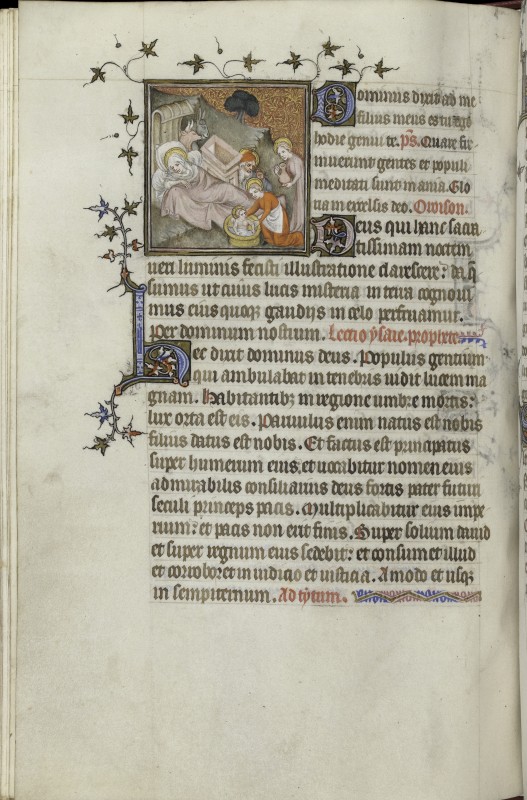 Dominus dixit ad me
filius meus es tu ego
hodie genui te. p̄s. Quare fre
muerunt gentes et populi
meditati sunt inania. Glo
ria in excelsis deo. Oroison.
Deus qui hanc sacra
tissimam noctem
ueri luminis fecisti illustratione clarescere: da q̄
sumus ut cuius lucis misteria in terra cognoui
mus eius quoq; gaudijs in celo perfruamur.
Per dominum nostrum. Lectio ysaie. prophete
Hec dixit dominus deus. Populus gentium
qui ambulabat in tenebris uidit lucem ma
gnam. Habitantib; in regione umbre mortis:
lux orta est eis. Paruulus enim natus est nobis
filius datus est nobis. Et factus est principatus
super humerum eius, et uocabitur nomen eius
admirabilis consiliarius deus fortis pater futuri
seculi princeps pacis. Multiplicabitur eius impe
rium: et pacis non erit finis. Super solium dauid
et super regnum eius sedebit: et confirmet illud
et corroboret in iudicio et iusticia. Amodo et usq;
in sempiternum. Ad tytum.